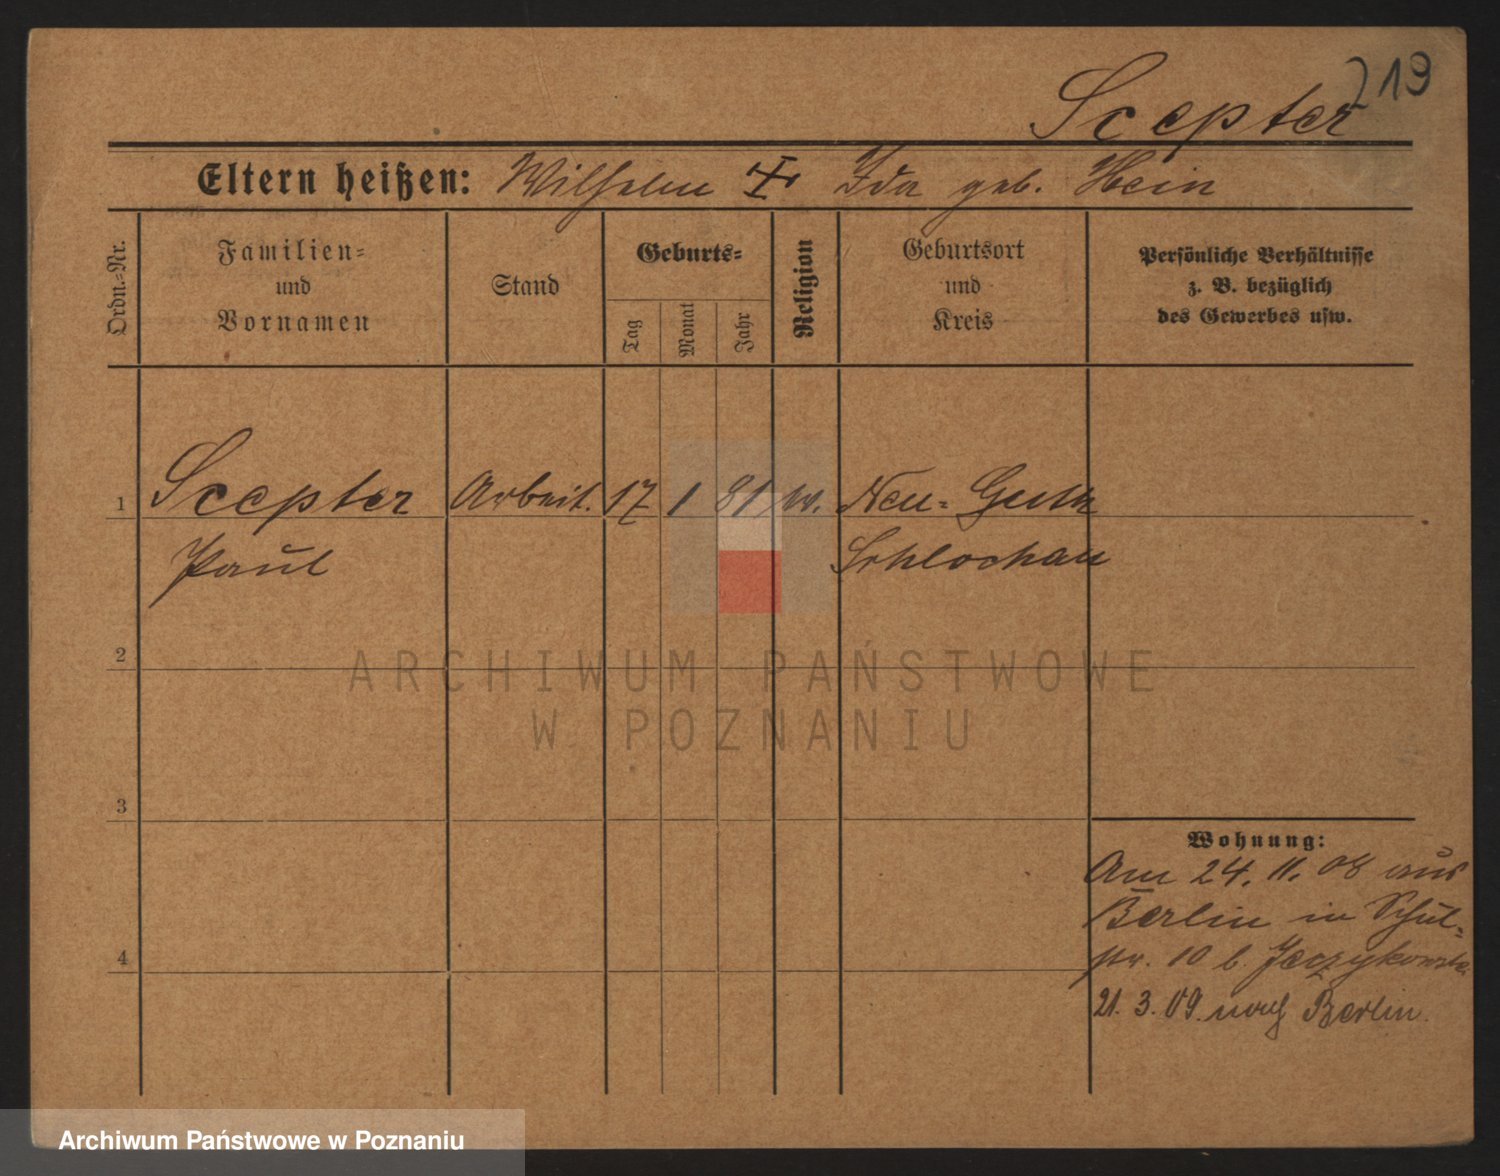 219
Scepter
Eltern heißen: Wilhelm Ida geb. Hein
Ordn.=Nr.
Familien=
und
Vornamen
Stand
Geburts=
Tag
Monat
Jahr
Religion
Geburtsort
und
Kreis
Persönliche Verhältnisse
z. B. bezüglich
des Gewerbes usw.
1 Scepter Arbeit. 17 1 81 Neu=
Paul Schlochau
2
3
4
Wohnung:
Am 24. 11. 08 aus
Berlin in Schul=
str. 10 b.
21. 3. 09. nach Berlin.
ARCHIWUM PAŃSTWOWE
W POZNANIU
Archiwum Państwowe w Poznaniu